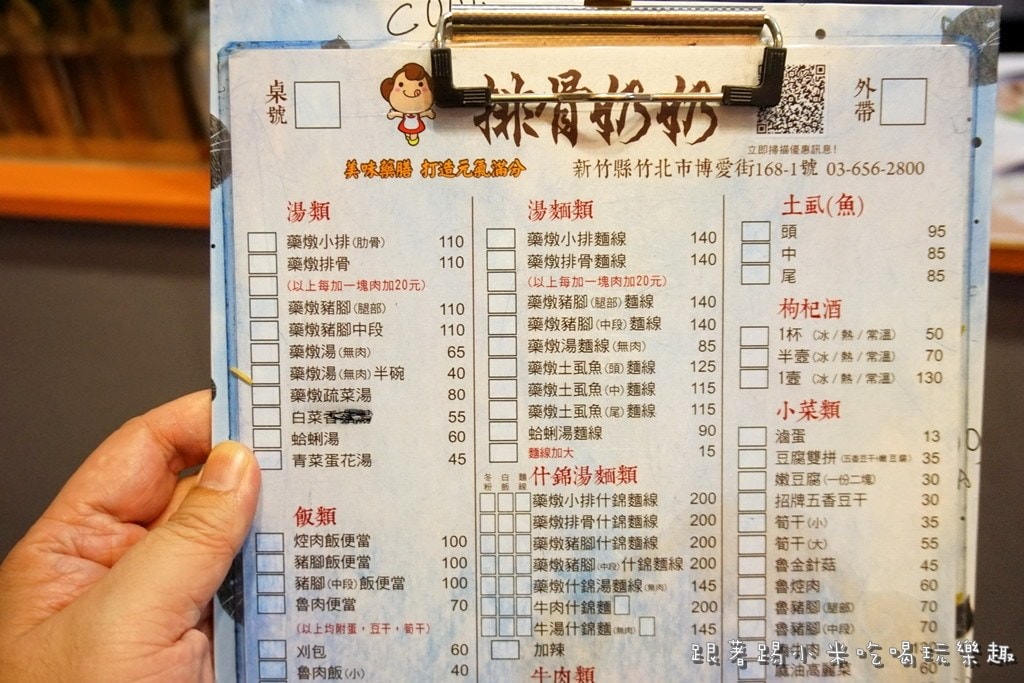 桌號
排骨奶奶
外帶
立即掃描優惠訊息!
美味藥膳 打造元氣滿分
新竹縣竹北市博愛街168-1號 03-656-2800
湯類
藥燉小排(肋骨) 110
藥燉排骨 110
(以上每加一塊肉加20元)
藥燉豬腳(腿部) 110
藥燉豬腳中段 110
藥燉湯(無肉) 65
藥燉湯(無肉)半碗 40
藥燉疏菜湯 80
白菜 55
蛤蜊湯 60
青菜蛋花湯 45
飯類
焢肉飯便當 100
豬腳飯便當 100
豬腳(中段)飯便當 100
魯肉便當 70
(以上均附蛋,豆干,筍干)
刈包 60
魯肉飯(小) 40
湯麵類
藥燉小排麵線 140
藥燉排骨麵線 140
(以上每加一塊肉加20元)
藥燉豬腳(腿部)麵線 140
藥燉豬腳(中段)麵線 140
藥燉湯麵線(無肉) 85
藥燉土虱魚(頭)麵線 125
藥燉土虱魚(中)麵線 115
藥燉土虱魚(尾)麵線 115
蛤蜊湯麵線 90
麵線加大 15
什錦湯麵類
冬粉 白飯 麵線
藥燉小排什錦麵線 200
藥燉排骨什錦麵線 200
藥燉豬腳什錦麵線 200
藥燉豬腳(中段)什錦麵線 200
藥燉什錦湯麵線(無肉) 145
牛肉什錦麵 200
牛湯什錦麵(無肉) 145
加辣
牛肉類
土虱(魚)
頭 95
中 85
尾 85
枸杞酒
1杯(冰/熱/常溫) 50
半壺(冰/熱/常溫) 70
1壺(冰/熱/常溫) 130
小菜類
滷蛋 13
豆腐雙拼(五香豆干+嫩豆腐) 35
嫩豆腐(一份二塊) 30
招牌五香豆干 30
筍干(小) 35
筍干(大) 55
魯金針菇 45
魯焢肉 60
魯豬腳(腿部) 70
魯豬腳(中段) 70
麻油高麗菜
跟著踢小米吃喝玩樂趣